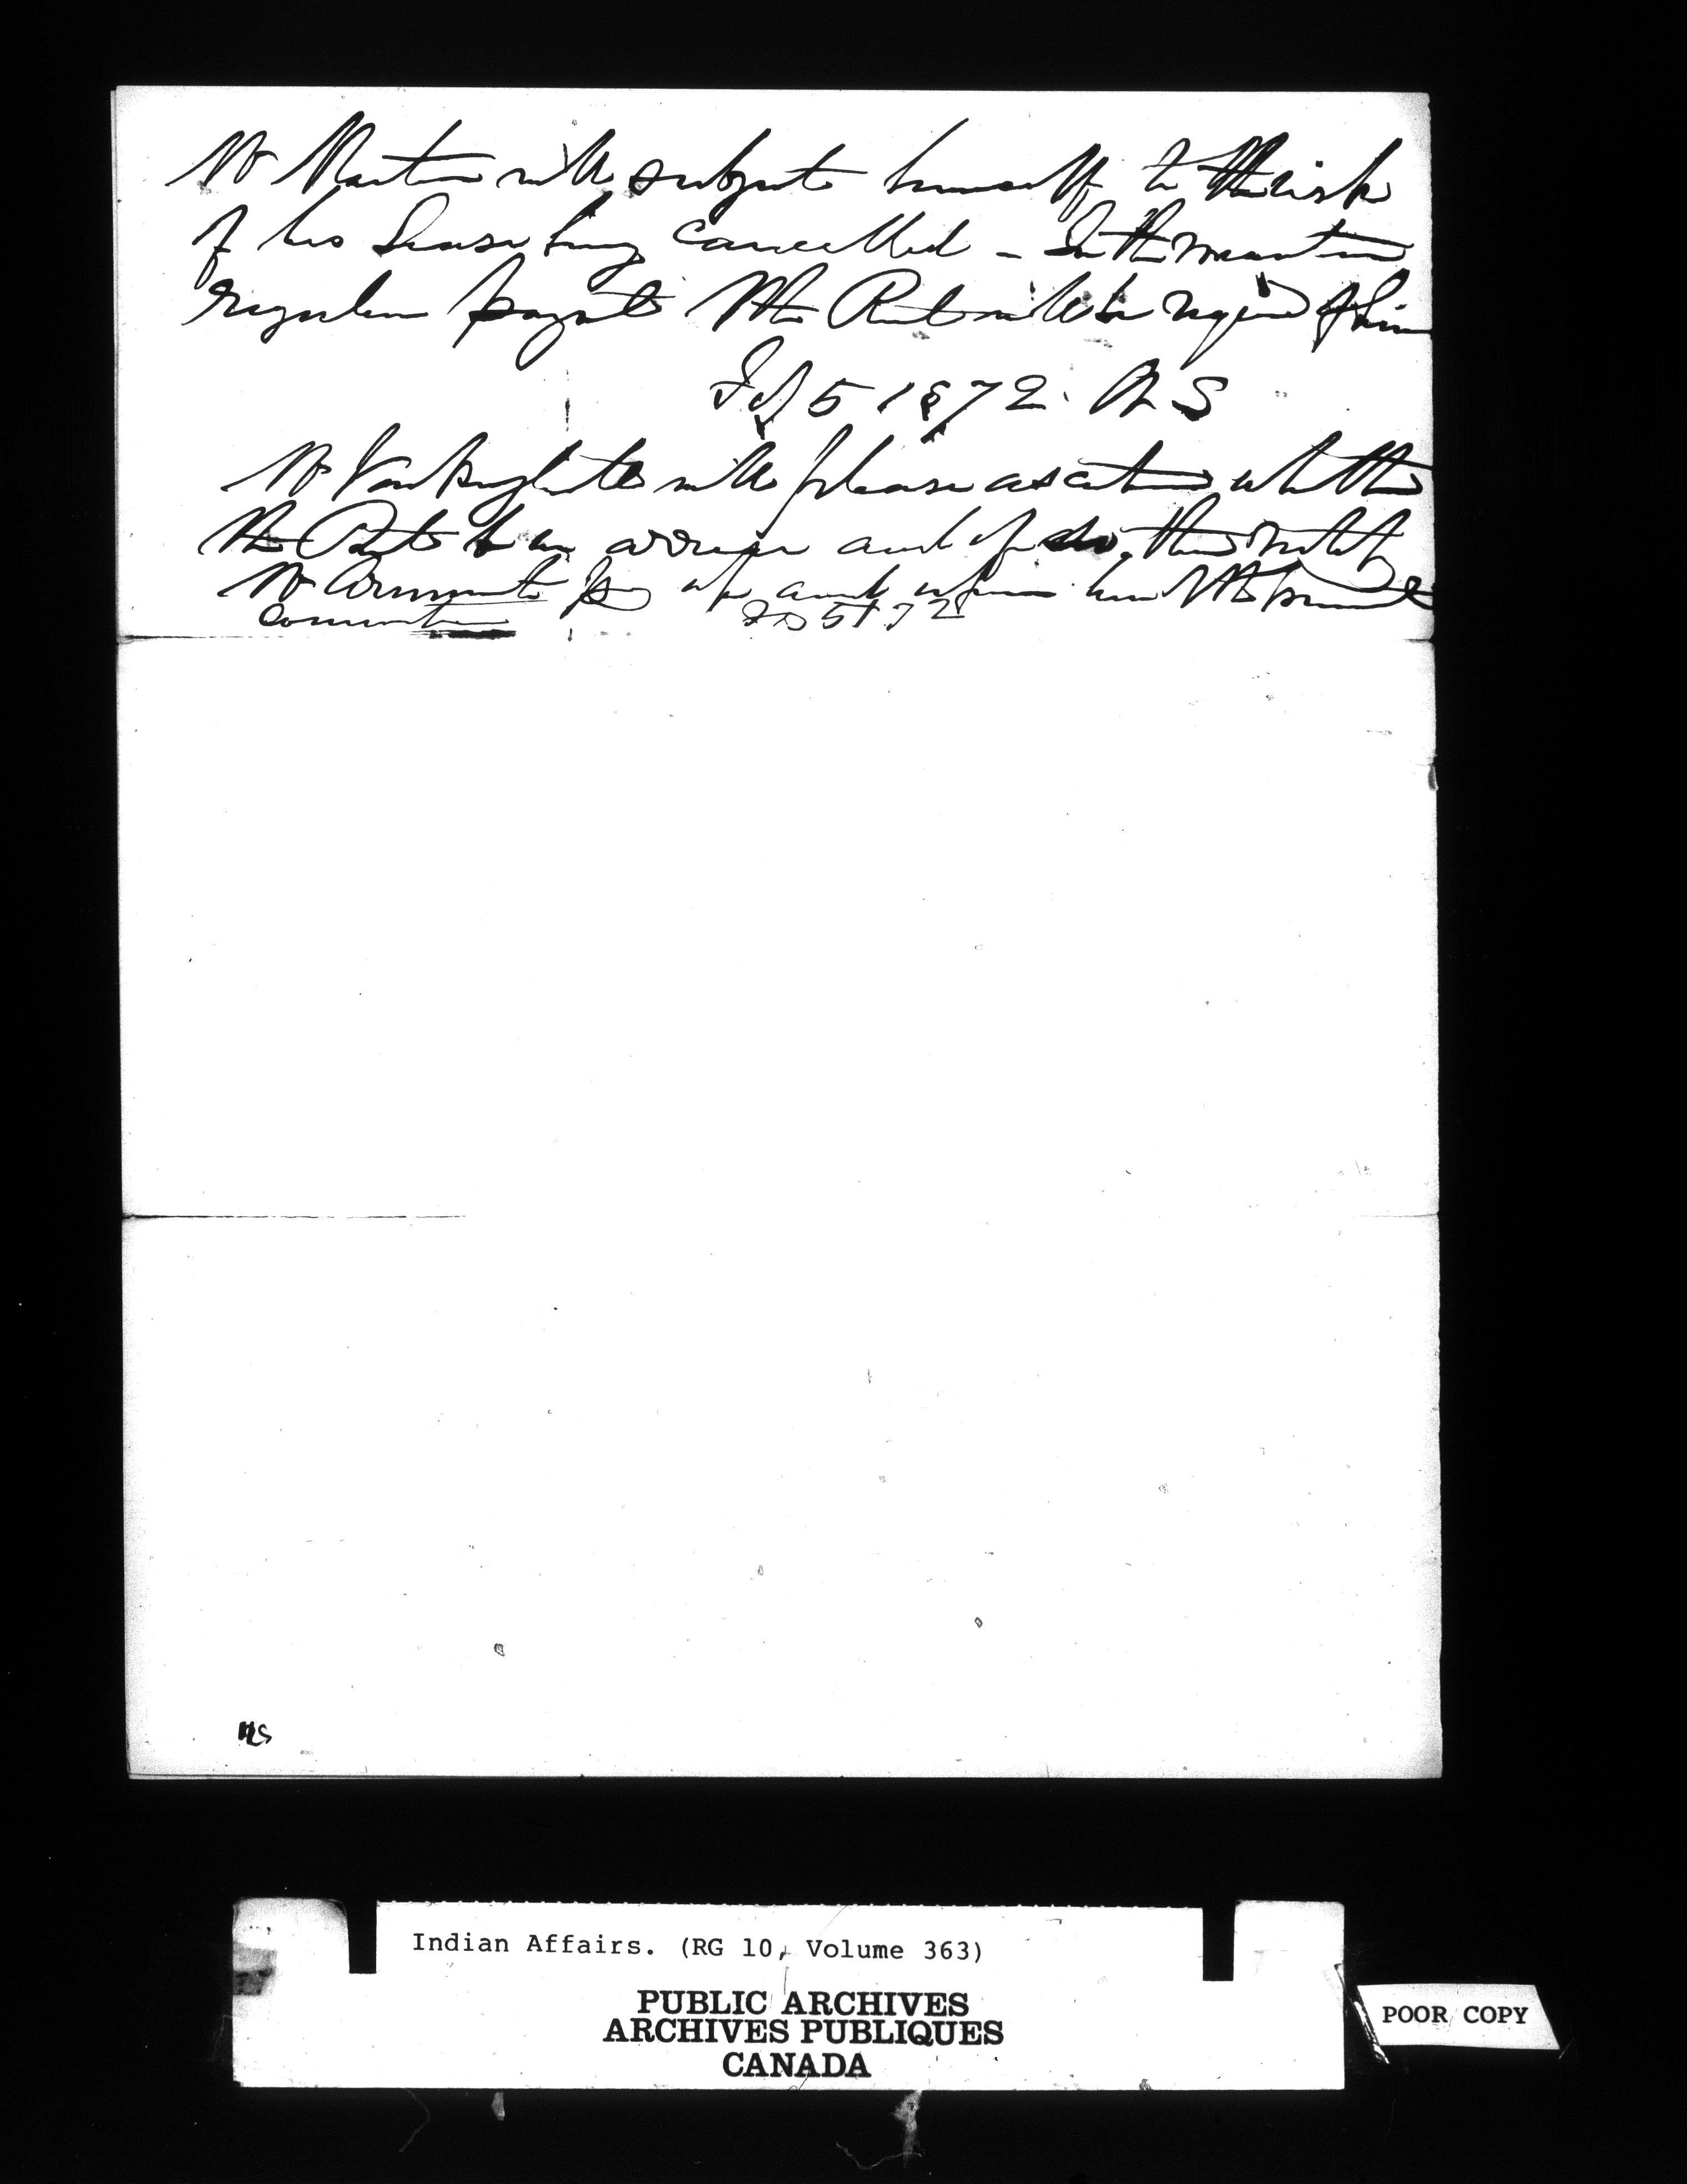 Mr Martin will subject himself to the risk
of his Lease being cancelled - In the meantime
regular payment of the Rent will be required of him
Feb 5 1872. H L S
Mr Vankoughnet will please ascertain whether
the Rent be in arrear and if so, then notify
Mr to pay up and inform him of the present
communication Feb 5 / 72
HLS
Indian Affairs. (RG 10, Volume 363)
PUBLIC ARCHIVES
ARCHIVES PUBLIQUES
CANADA
POOR COPY